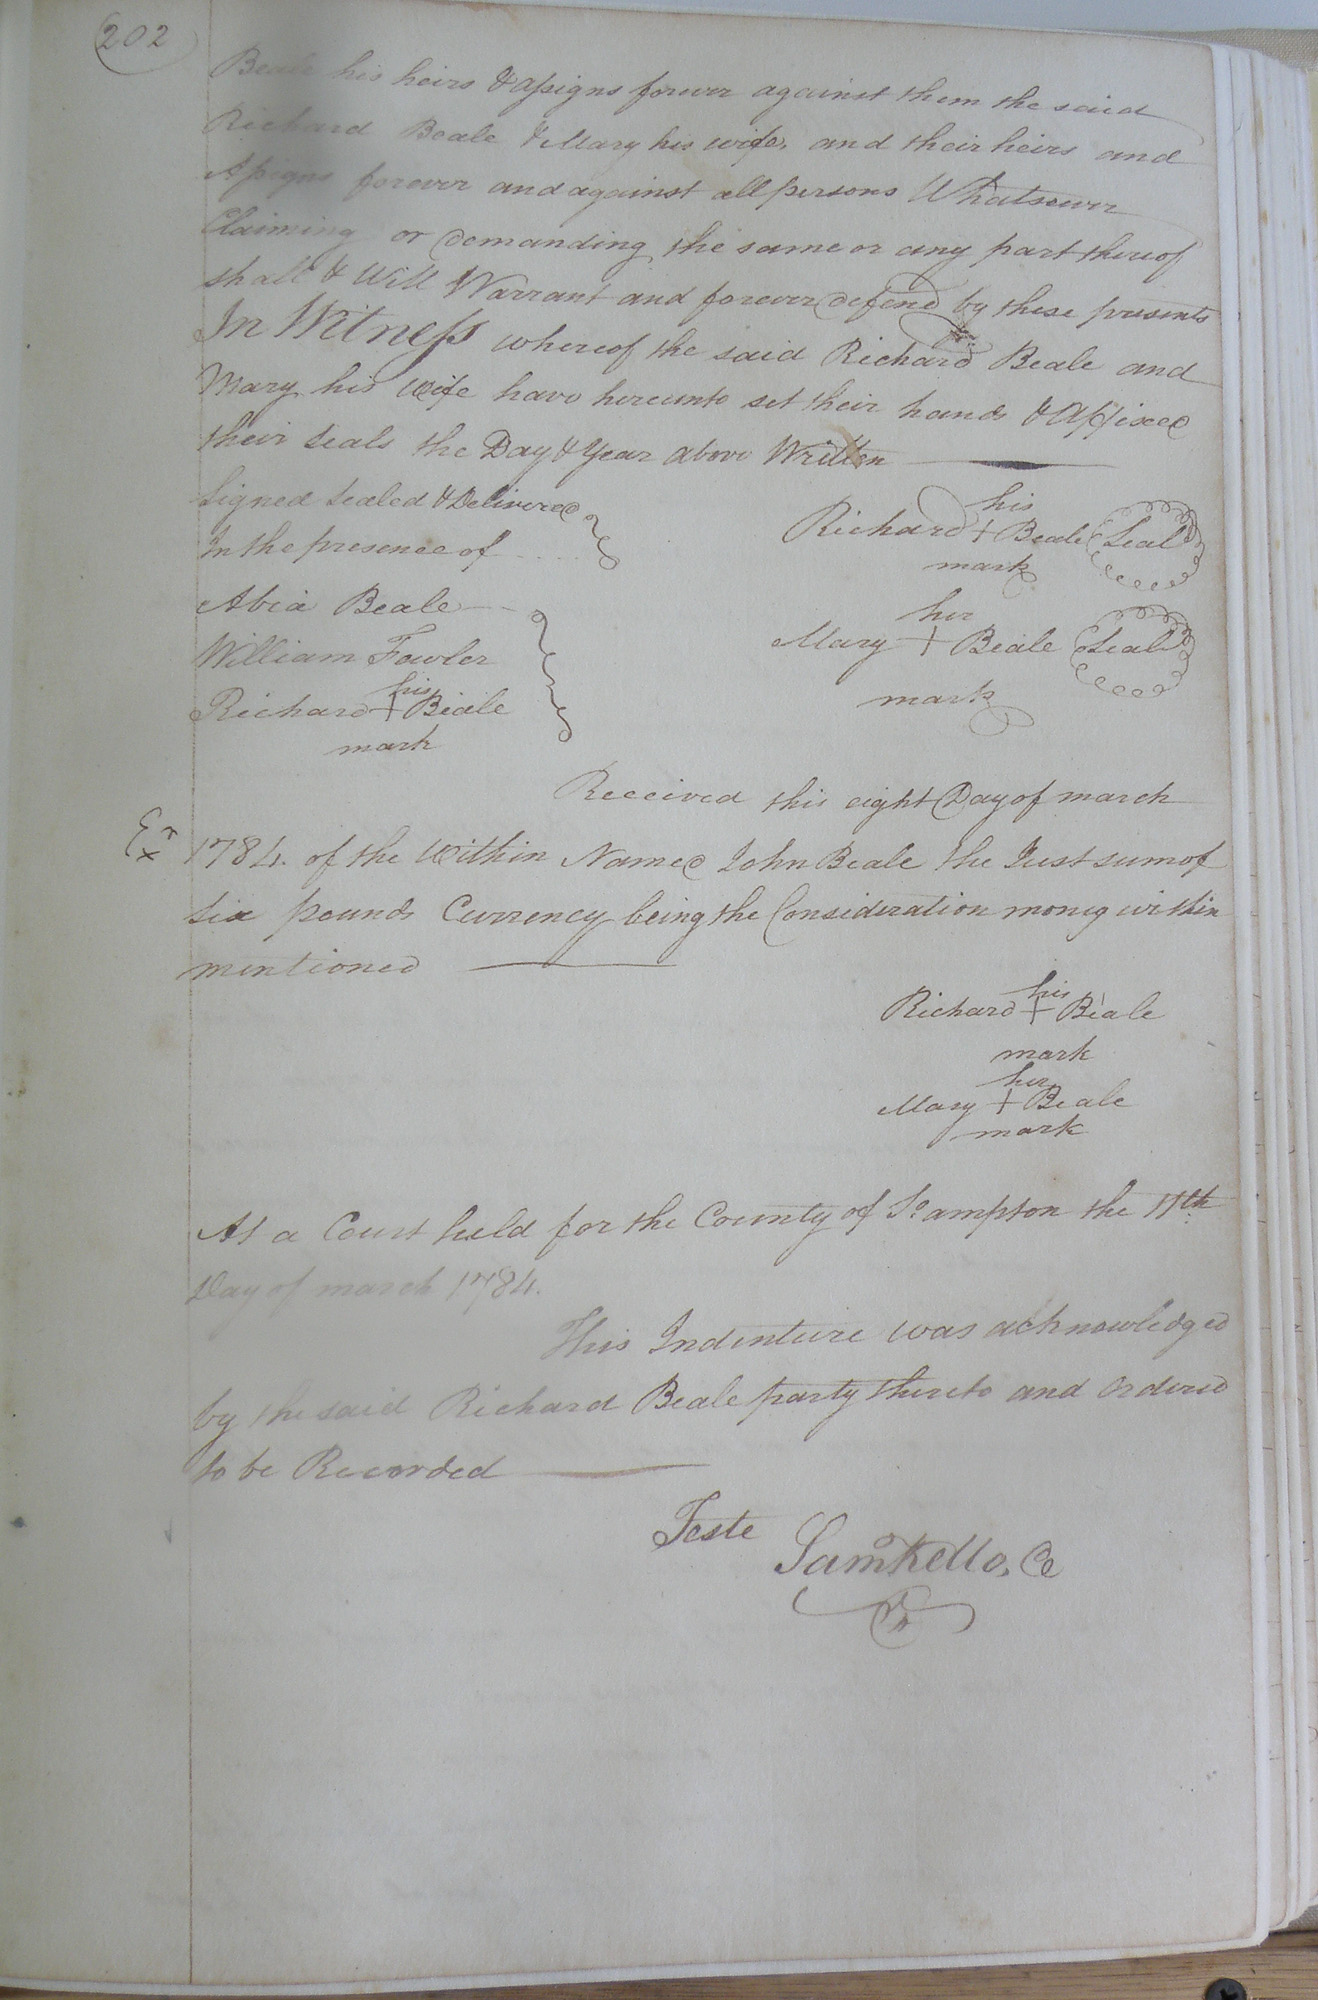 202
Beale his heirs & assigns forever against them the said
Richard Beale & Mary his wife, and their heirs and
Assigns forever and against all persons Whatsoever
Claiming or demanding the same or any part thereof
shall & Will Warrant and forever defend by these presents
In Witness whereof the said Richard Beale and
Mary his wife have hereunto set their hands & Affixed
their seals the Day & Year above Written
Signed Sealed & Delivered
In the presence of
his
Richard + Beale Seal
mark
Abia Beale
William Fowler
his
Richard + Beale
mark
her
Mary + Beale Seal
mark
Received this eight Day of march
Ex
1784. of the Within Named John Beale the Just sum of
six pounds Currency being the Consideration money within
mentioned
his
Richard + Beale
mark
her
Mary + Beale
mark
At a Court held for the County of So. ampton the 11th
Day of march 1784.
This Indenture was acknowledged
by the said Richard Beale party thereto and Ordered
to be Recorded
Teste
Saml Kello, Cl